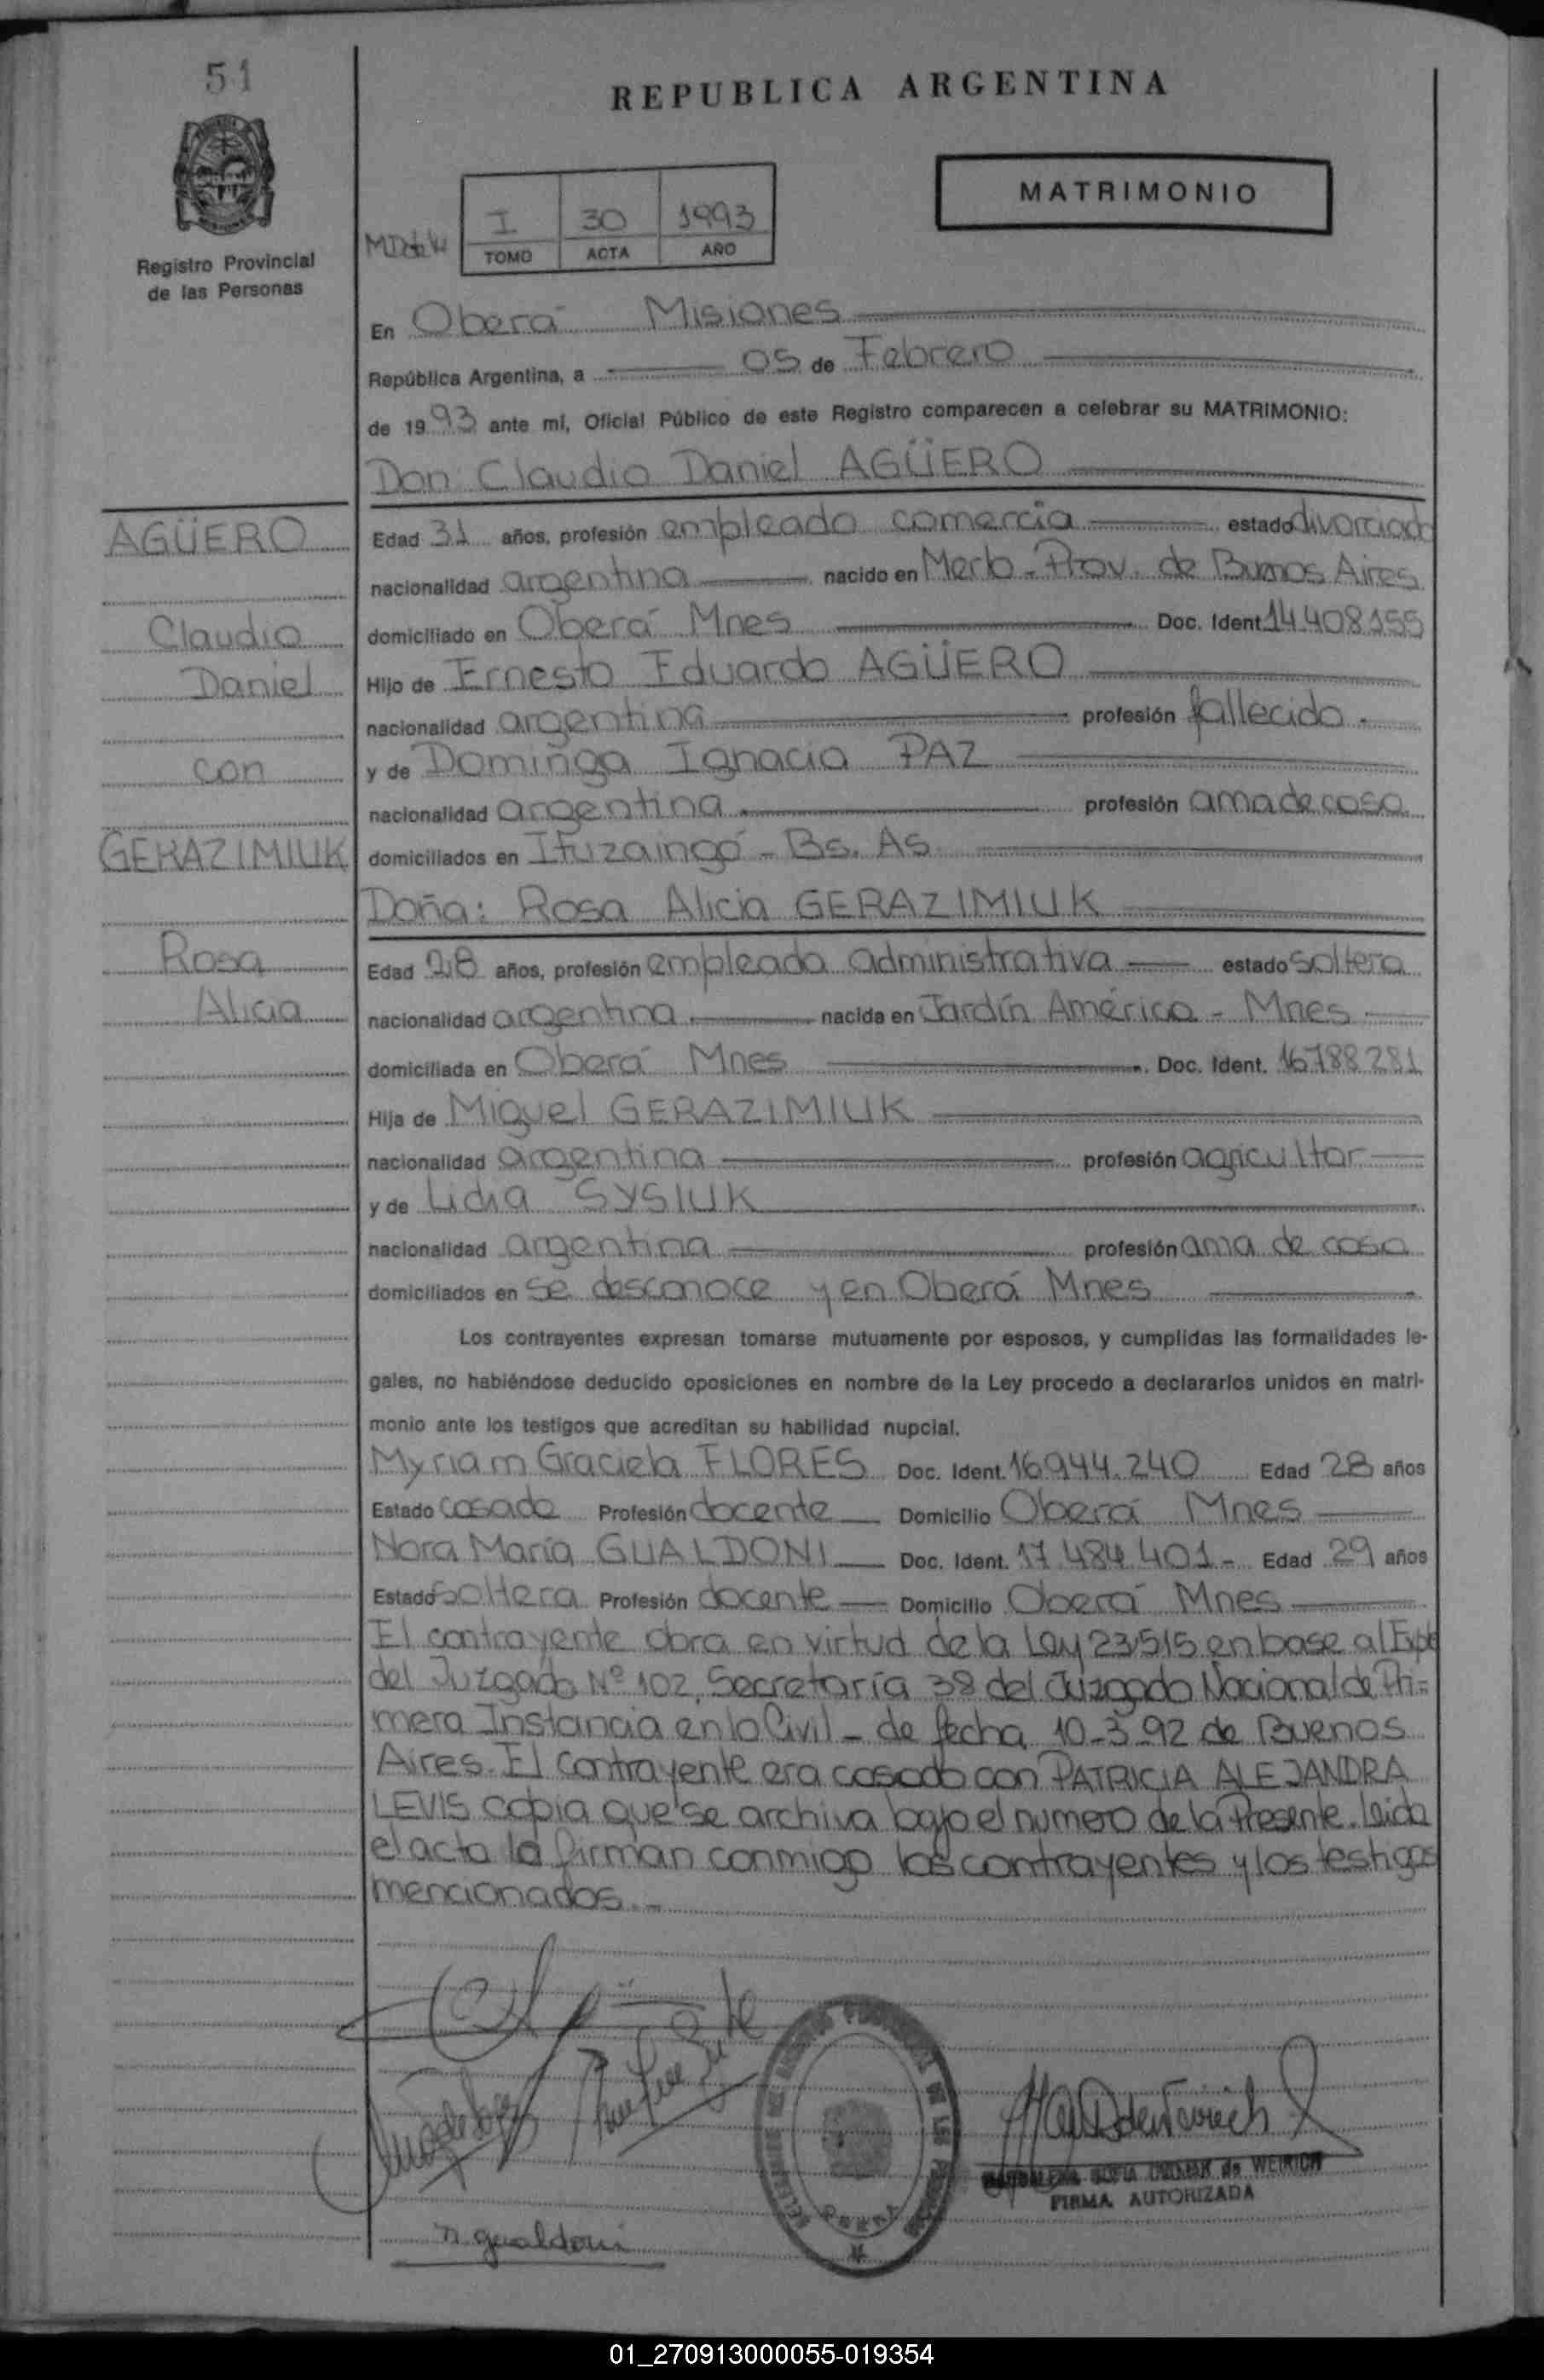 51
REPUBLICA ARGENTINA
MATRIMONIO
Registro Provincial
de las Personas
I 30 1993
TOMO ACTA AÑO
En Oberá Misiones
República Argentina, a 05 de Febrero
de 1993 ante mi, Oficial Público de este Registro comparecen a celebrar su MATRIMONIO:
Don Claudio Daniel AGÜERO
AGÜERO
Claudio
Daniel
con
GERAZIMIUK
Rosa
Alicia
Edad 31 años, profesión empleado comercio estado divorciado
nacionalidad argentina nacido en Merlo - Prov. de Buenos Aires
domiciliado en Oberá Mnes Doc. Ident 14.408.155
Hijo de Ernesto Eduardo AGÜERO
nacionalidad argentina profesión fallecido.
y de Dominga Ignacia PAZ
nacionalidad argentina profesión ama de casa
domiciliados en Ituzaingó - Bs. As.
Doña: Rosa Alicia GERAZIMIUK
Edad 28 años, profesión empleada administrativa estado soltera
nacionalidad argentina nacida en Jardín América - Mnes
domiciliada en Oberá Mnes Doc. Ident. 16788281
Hija de Miguel GERAZIMIUK
nacionalidad argentina profesión agricultor
y de Lidia SYSIUK
nacionalidad argentina profesión ama de casa
domiciliados en se desconoce y en Oberá Mnes
Los contrayentes expresan tomarse mutuamente por esposos, y cumplidas las formalidades le-
gales, no habiéndose deducido oposiciones en nombre de la Ley procedo a declararlos unidos en matri-
monio ante los testigos que acreditan su habilidad nupcial.
Myriam Graciela FLORES Doc. Ident. 16.944.240 Edad 28 años
Estado casada Profesión docente Domicilio Oberá Mnes
Nora María GUALDONI Doc. Ident. 17.484.401- Edad 29 años
Estado soltera Profesión docente Domicilio Oberá Mnes
El contrayente obra en virtud de la Ley 23.515 en base al Expte
del Juzgado Nº 102, Secretaría 38 del Juzgado Nacional de Pri=
mera Instancia en lo Civil - de fecha 10-3-92 de Buenos
Aires. El contrayente era casado con PATRICIA ALEJANDRA
LEVIS copia que se archiva bajo el numero de la Presente. Leida
el acta la firman conmigo los contrayentes y los testigos
mencionados.-
SOFIA de WEIRICH
FIRMA AUTORIZADA
n. gualdoni
01_270913000055-019354